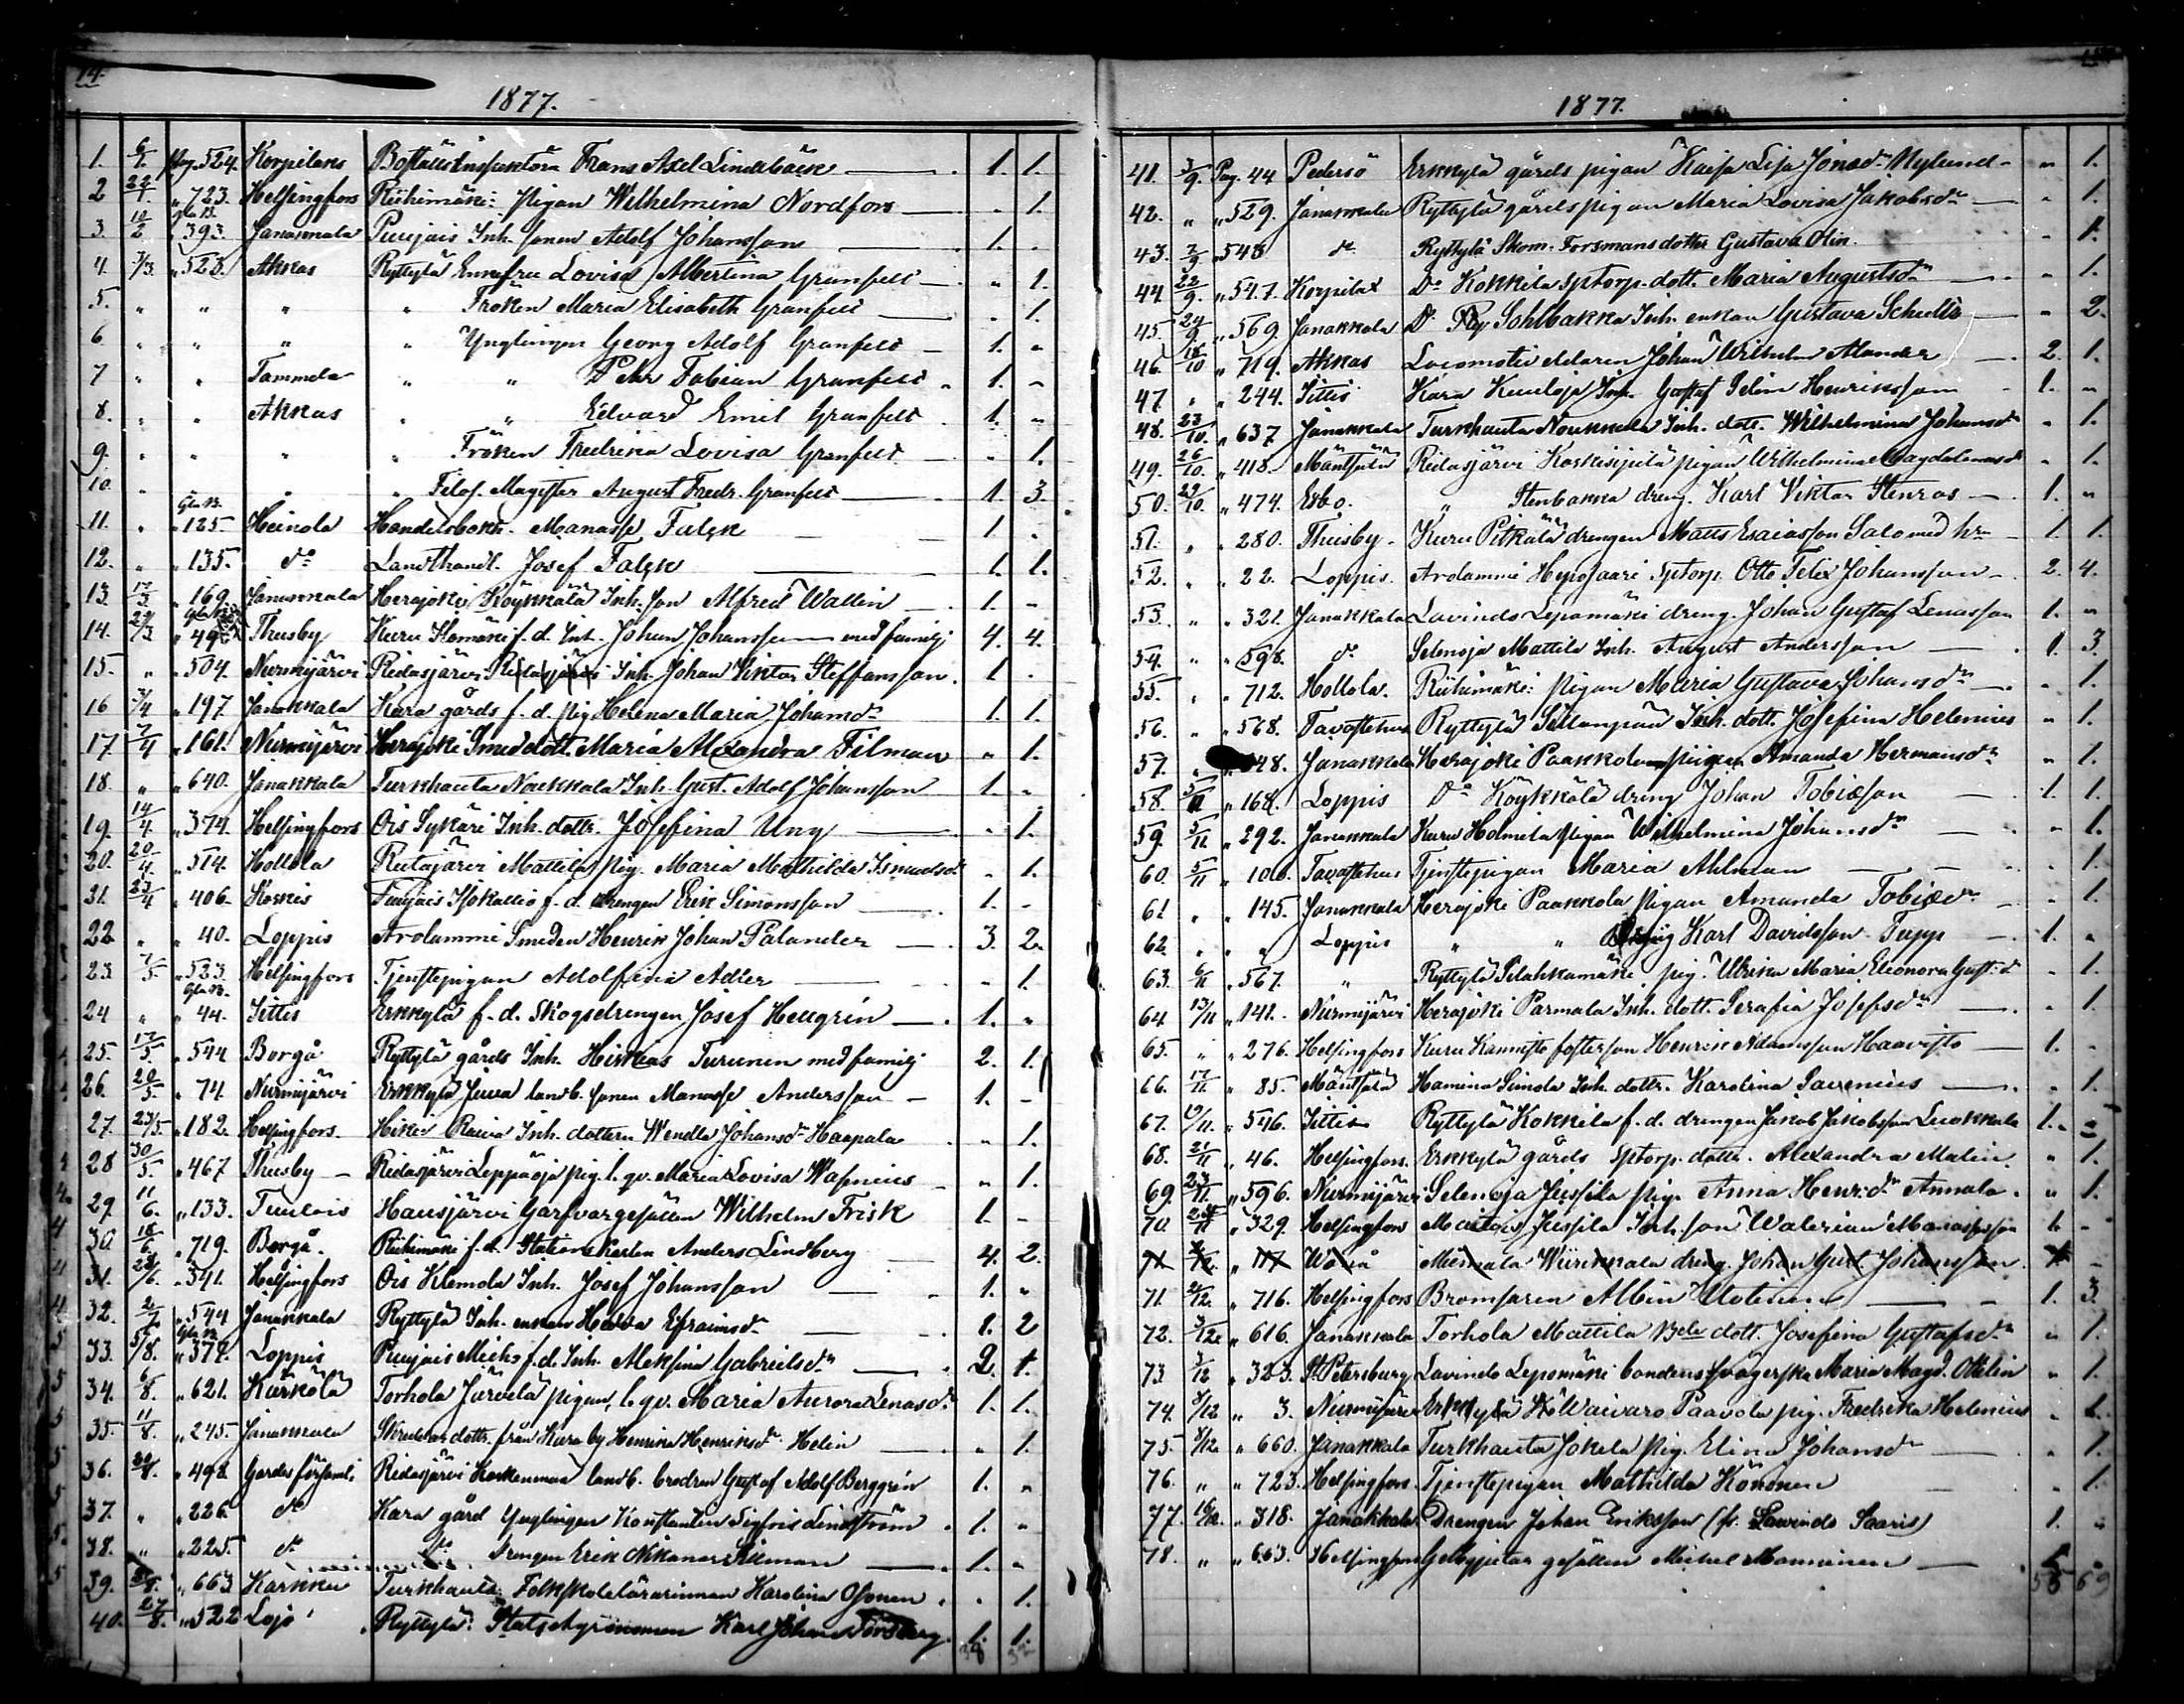 14.
1877.
1. 6/1. Pag. 524. Korpilaks Boställsinspektorn Frans Axel Lindebäck 1. 1.
2 22/1. " 723. Helsingfors Riihimäki: Pigan Wilhelmina Nordfors . 1.
3. 10/2 Gla B. " 393. Janakkala Puujais Inh. sonen Adolf Johansson 1. .
4. 3/3. " 528. Akkas Ryttylä Enkefru Lovisa Albertina Granfelt " 1.
5. " " " " Fröken Maria Elisabeth Granfelt . 1.
6 " " " " Ynglingen Georg Adolf Granfelt 1. "
7 " " Tammela " " Pehr Fabian Granfelt 1. "
8. " " Akkas " " Edvard Emil Granfelt 1. "
9. " " " " Fröken Fredrika Lovisa Granfelt . 1.
10. " " " Filos. Magister August Fredr. Granfelt 1. 3
11. " Gla B. " 125 Heinola Handelsbokh. Manasse Falck 1 .
12. " " 135. do Landthandl. Josef Falck 1. 1.
13. 17/3. " 169. Janakkala Herajoki Köykkälä Inh. son Alfred Wallin 1. -
14. 24/3 " 49 Thusby Kuru Homäki f. d. Inh. Johan Johansson med familj 4. 4.
15. " " 504. Nurmijärvi Ridasjärvi Ridasjärvi Inh. Johan Viktor Steffansson. 1 .
16 3/4 " 197 Janakkala Kara gårds f. d. pig Helena Maria Johansdr 1. 1.
17. 7/4 " 161. Nurmijärvi Herajoki Smed dott. Maria Alexandra Filman " 1.
18. " " 640. Janakkala Turkhauta Noukkala Inh. Gust. Adolf Johansson 1. "
19. 14/4. " 374. Helsingfors Ois Sykäri Inh. dottr. Josefina Ung . 1.
20. 20/4. " 514. Hollola Ridasjärvi Mattila pig. Maria Mathilda . 1.
21. 23/4 " 406. Koskis Puujais Isokallio f. d. drengen Erik Simonsson 1. -
22 " " 40. Loppis Arolammi Smeden Henrik Johan Palander 3. 2.
23. 7/5. " 523. Helsingfors Tjenstepigan Adolfina Adler " 1.
24 " Gla B. " 44. Jittis Erkkylä f. d. Skogsdrengen Josef Hellgrén 1. "
25. 17/5. " 544 Borgå Ryttylä gårds Inh. Turunen med familj 2. 1.
26. 20/5. " 74. Nurmijärvi Erkkylä landb. sonen Manasse Andersson 1. -
27. 23/5. " 182. Helsingfors. Hikiä Inh. dottern Wendla Johansdr Haapala " 1.
28 30/5. " 467 Thusby Ridasjärvi Leppäoja pig. l. qv. Maria Lovisa Wasenius " 1.
29. 11/6. " 133. Tuulois Hausjärvi Garfvargesällen Wilhelm Frisk 1. -
30. 18/6. " 719. Borgå. Riihimäki f. d. Stationskarlen Anders Lindberg 4. 2.
31. 28/6. " 341. Helsingfors Ois Klemola Inh. Josef Johansson 1. "
32. 2/7 " 544 Janakkala Ryttylä Inh. enkan Hedda Efraimsdr 1. 2
33. 5/8. Gla B. " 372. Loppis Puujais f. d. Inh. Gabrielsdr 2. 1.
34. 6/8. " 621. Kärkölä Torhola Järvelä pigan, l. qv. Maria Aurora Lenasdr 1. 1.
35. 11/8. " 245. Janakkala Skräddar dottr. från Kara by Henrika Henriksdr Helin " 1.
36. 20/8. " 498. Gardes församl. Ridasjärvi landb. brodren Gustaf Adolf Berggrén 1. "
37. " " 226. do Kara gård Ynglingen Konstantin Sigfrid Lindström 1. "
38. " " 225. do do drengen Erik Nikanor 1. "
39. " 663 Karkku Turkhauta: Folkskolelärarinnan Karolina . 1.
40. 27/8. " 522 Lojo Ryttylä: Statsagronomen Karl Johan Forsberg. 1. 1.
1877.
41. 3/9. Pag. 44 Pedersö Erkkylä gårds pigan Kaisa Lisa Jonasdr Nylund " 1.
42. " " 529. Janakkala Ryttylä gårds pigan Maria Lovisa Jakobsdr " 1.
43. 7/9 " 548 do Ryttylä Skom. Forsmans dotter Gustava Olin " 1.
44. 22/9. " 547. Korpilax Do Kokkila sptorp. dott. Maria Augustsdr " 1.
45. 24/9 " 569. Janakkala Do Sohlbakka Inh. enkan Gustava Schultz " 2.
46. 18/10 " 719. Akkas Locomotiv eldaren Johan Wilhelm Alander 2. 1.
47. " " 244. Jittis Kara Inh. Gustaf Selim Henriksson 1. "
48. 23/10. " 637 Janakkala Turkhauta Noukkala Inh. dott. Wilhelmina Johansdr " 1.
49. 26/10. " 418. Mäntsälä Ridasjärvi pigan Wilhelmina Magdalenasdr " 1.
50. 29/10. " 474. Esbo. " Stenbakka dreng. Karl Viktor Stenros 1. "
51. " " 280. Thusby Kuru Pitkälä drengen Matts Esaiasson Salo med hr 1. 1.
52. " " 22. Loppis. Arolammi Hyposaari Sptorp. Otto Felix Johansson 2. 4.
53. " " 321. Janakkala Lavinds Leposmäki dreng. Johan Gustaf Lenasson 1. "
54. " " 598. do Selenoja Mattila Inh. August Andersson 1. 3.
55. " " 712. Hollola. Riihimäki: pigan Maria Gustava Johansdr " 1.
56. " " 568. Tavastehus Ryttylä Sillanpää Inh. dott. Josefina Helenius " 1.
57. " 148. Janakkala Herajoki Paakkola pigan Amanda Hermansdr " 1.
58. 3/11 " 168. Loppis Do Köykkälä dreng Johan Tobiasson 1. 1.
59. 5/11. " 292. Janakkala Kuru Holmila pigan Wilhelmina Johansdr " 1.
60. 5/11 " 100. Tavastehus Tjenstepigan Maria Ahlman " 1.
61 " " 145. Janakkala Herajoki Paakkola pigan Amanda Tobiaedr " 1.
62. " " " Loppis " " dreng Karl Davidsson Tupp 1. "
63. 6/11 " 567. " Ryttylä Silahkamäki pig. Ulrika Maria Eleonora Gustd " 1.
64. 13/11 " 141. Nurmijärvi Herajoki Parmala Inh. dott. Serafia Josefsdr " 1.
65. " " 276. Helsingfors Kuru Kannisto fosterson Henrik Adamsson Haavisto 1. "
66. 17/11 " 85. Mäntsälä Hamina Simola Inh. dottr. Karolina Savenius " 1.
67. 19/11. " 546. Jittis Ryttylä Kokkila f. d. drengen Jakob Jakobsson Luokkala 1. "
68. 21/11 " 46. Helsingfors. Erkkylä gårds Sptorp. dottr. Alexandra Malin " 1.
69. 23/11. " 596. Nurmijärvi Selenoja Jussila pig. Anna Henr:dr Annala. " 1.
70. " 329. Helsingfors Jussila Inh. son Walerian Manassesson 1. -
Wånå Wiirikkala dreng. Johan Gust. Johansson
71. 2/12. " 716. Helsingfors Bromsaren Albin Uotinen 1. 3.
72. 3/12. " 616. Janakkala Torhola Mattila Bde dott. Josefina Gustafsdr " 1.
73. 3/12 " 323. St Petersburg Lavinds Leposmäki bondens svägerska Maria Magd. Ottelin " 1.
74. 8/12 " 3. Nurmijärvi Erkkylä Waivaro Paavola pig. Fredrika Helenius " 1.
75. 8/12. " 660. Janakkala Turkhauta Jokela pig. Elina Johansdr " 1.
76. " " 723. Helsingfors. Tjenstepigan Mathilda Könönen " 1.
77. 16/12. " 318. Janakkala Drengen Johan Eriksson (fr. Lavinds Saaris) 1. "
78. " " 663. Helsingfors gesällen Mikel Manninen 1. "
55 69